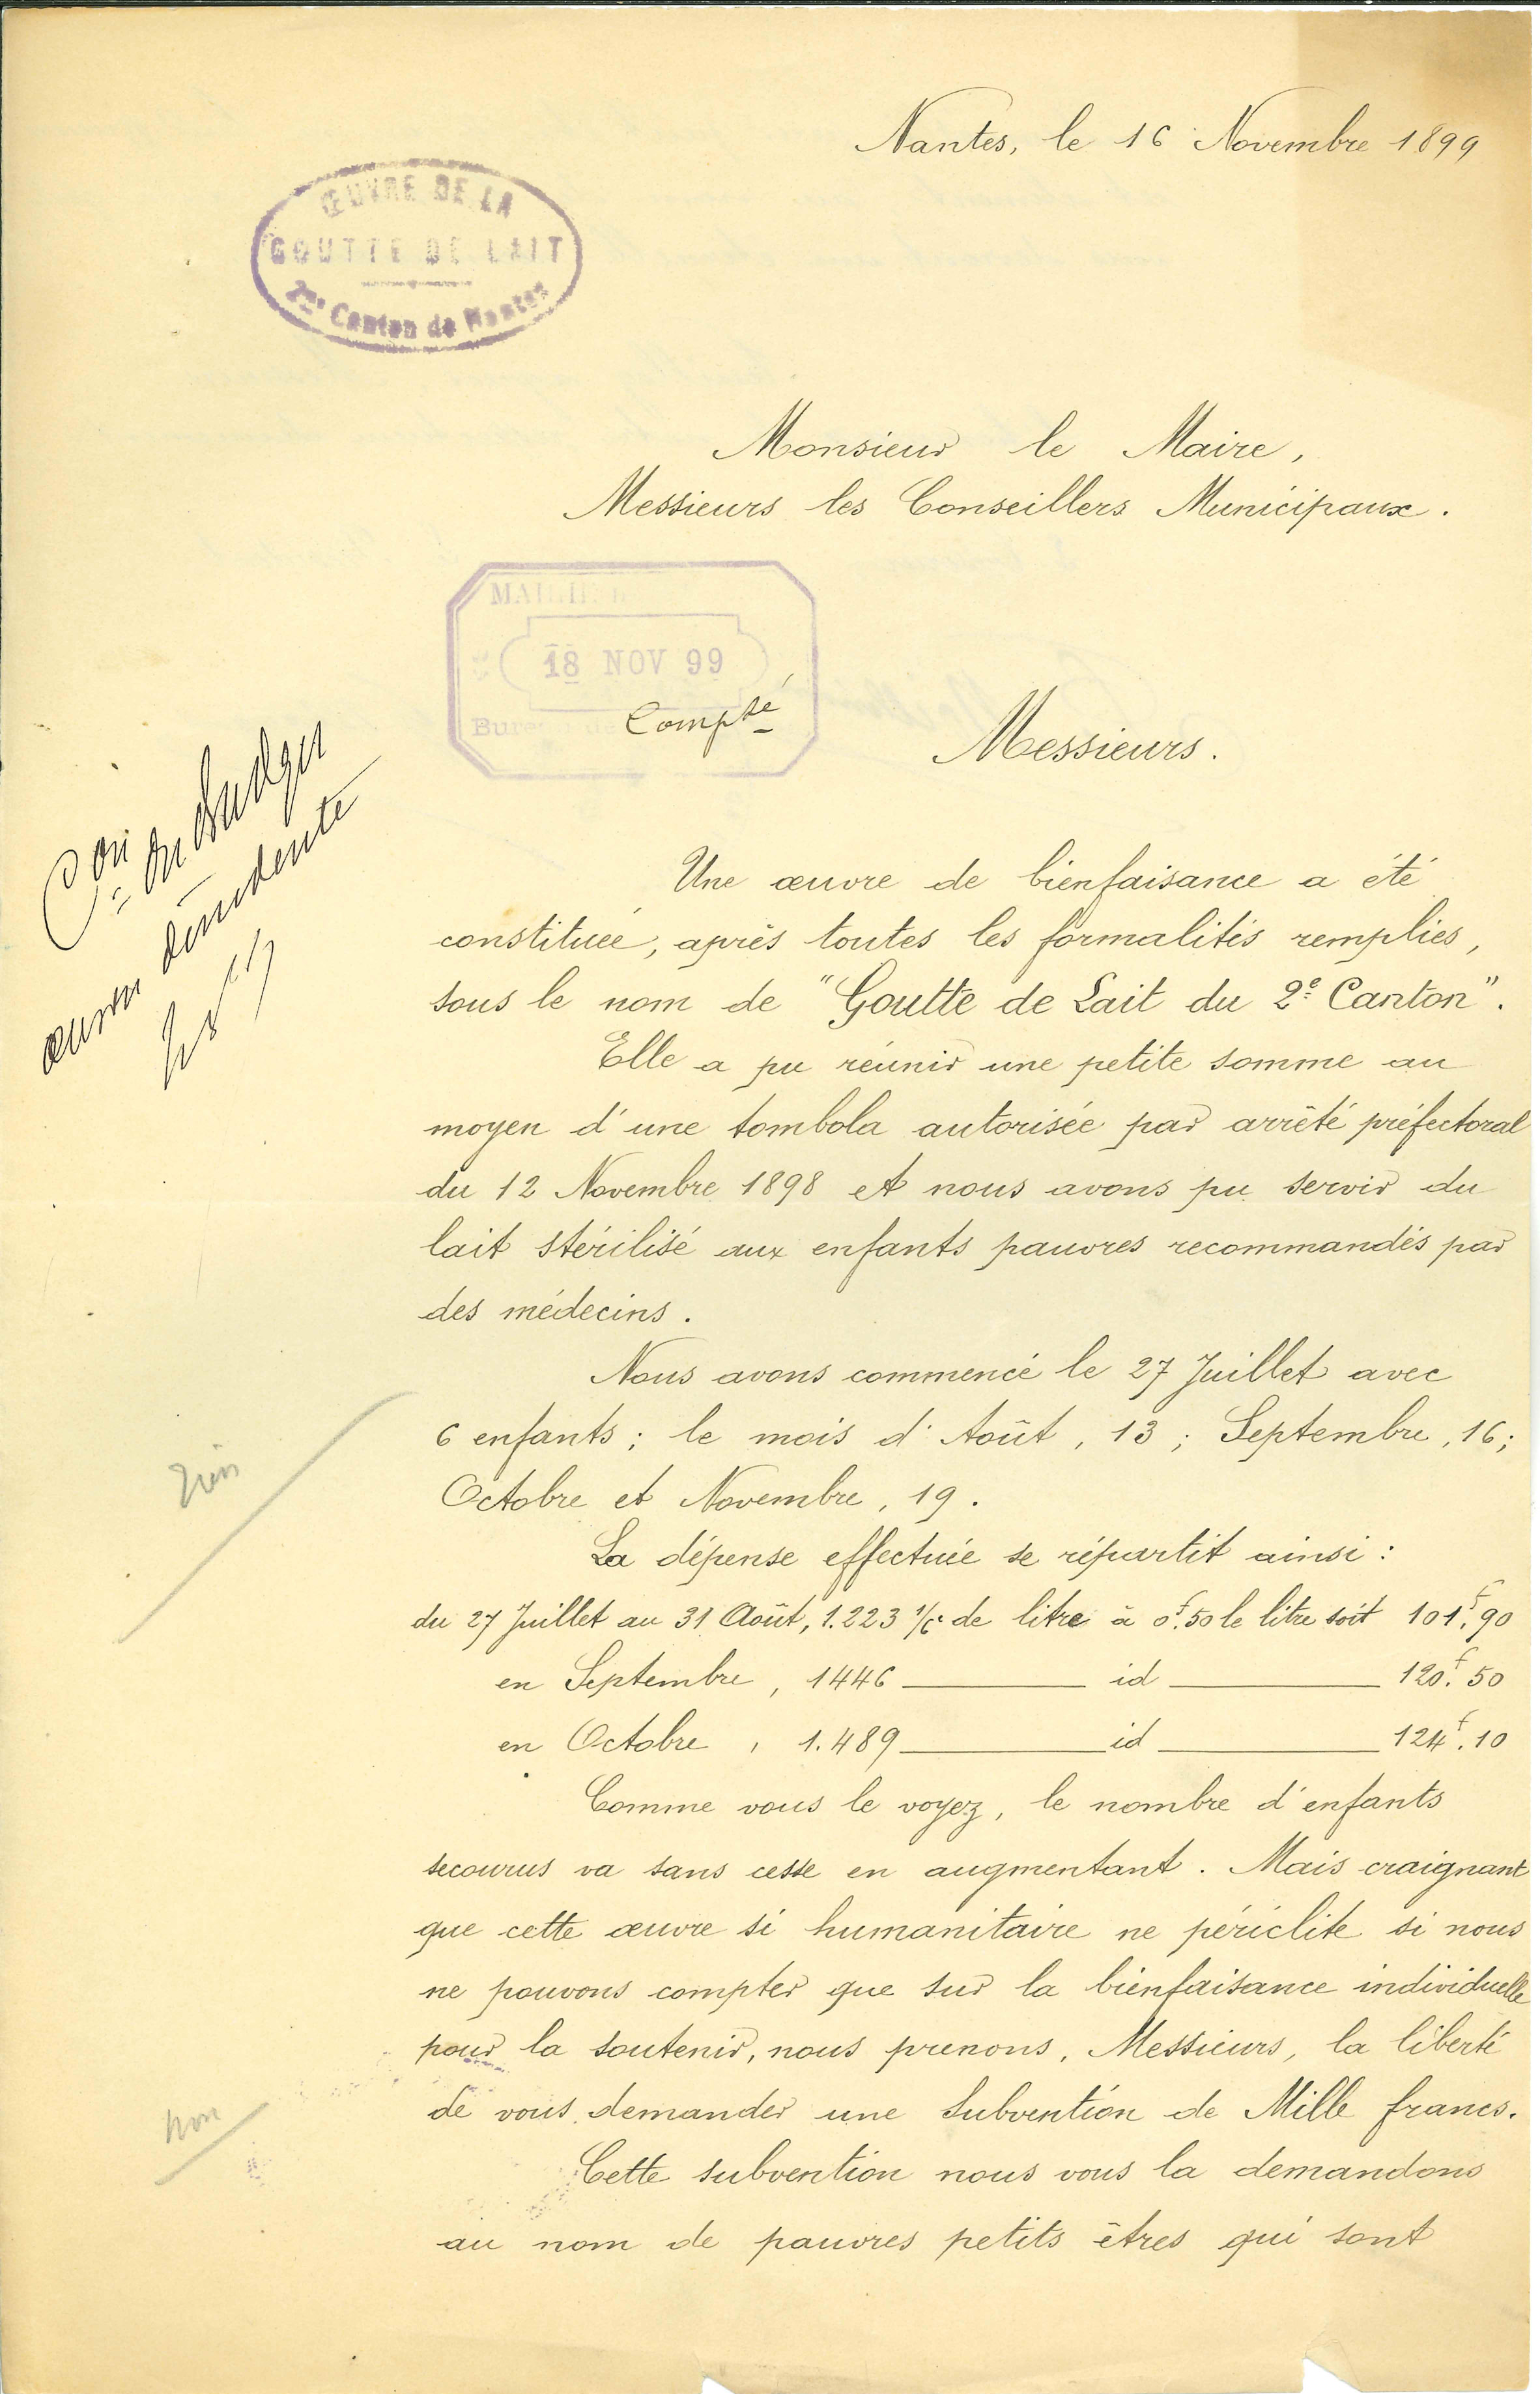 Nantes, le 16 Novembre 1899
ŒUVRE DE LA
GOUTTE DE LAIT
2me Canton de Nantes
Monsieur le Maire,
Messieurs les Conseillers Municipaux.
MAIRIE
18 NOV 99
Bureau de
Compté
Messieurs.
Con du budget
Une œuvre de bienfaisance a été
constituée, après toutes les formalités remplies,
sous le nom de "Goutte de Lait du 2e Canton".
Elle a pu réunir une petite somme au
moyen d'une tombola autorisée par arrêté préfectoral
du 12 Novembre 1898 et nous avons pu servir du
lait stérilisé aux enfants pauvres recommandés par
des médecins.
Nous avons commencé le 27 Juillet avec
6 enfants; le mois d'Août, 13; Septembre, 16;
Octobre et Novembre, 19.
rien
La dépense effectuée se répartit ainsi :
du 27 Juillet au 31 Août, 1.223 1/6 de litre à 0f.50 le litre soit 101f.90
en Septembre, 1446 id 120f.50
en Octobre, 1.489 id 124f.10
Comme vous le voyez, le nombre d'enfants
secourus va sans cesse en augmentant. Mais craignant
que cette œuvre si humanitaire ne périclite si nous
ne pouvons compter que sur la bienfaisance individuelle
pour la soutenir, nous prenons, Messieurs, la liberté
de vous demander une subvention de Mille francs.
non
Cette subvention nous vous la demandons
au nom de pauvres petits êtres qui sont